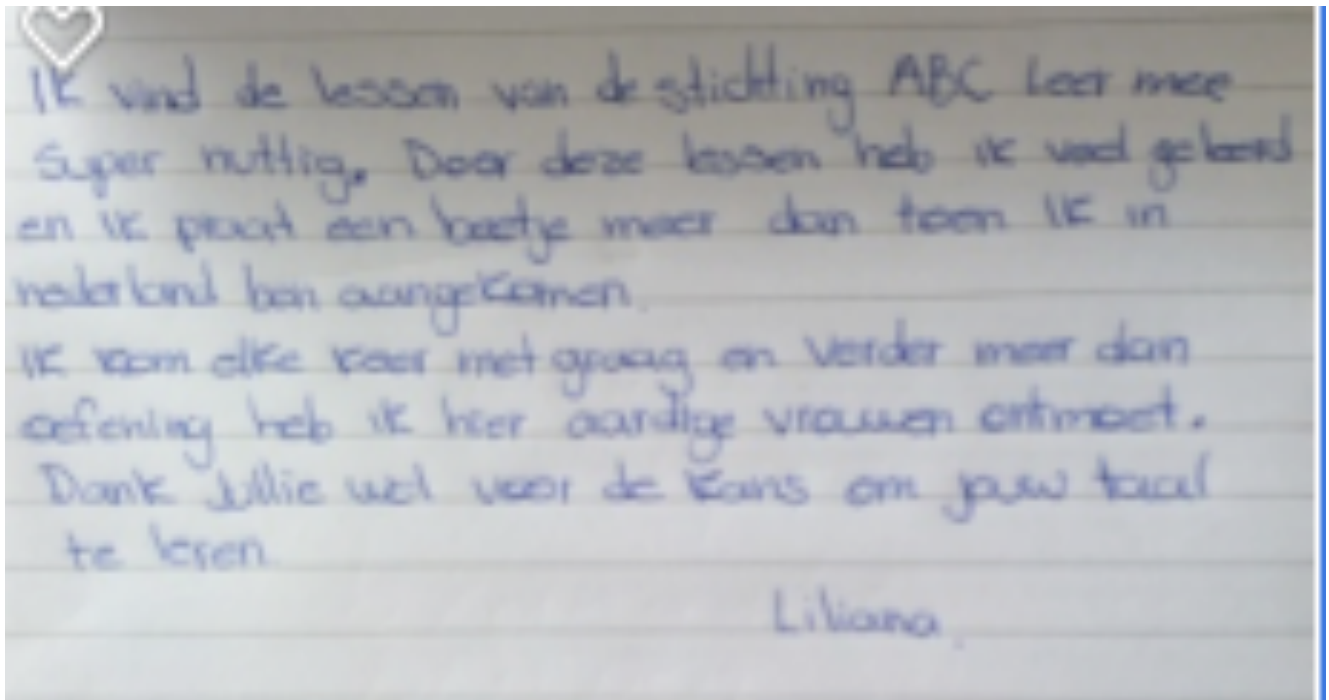 Ik vind de lessen van de stichting ABC Leer mee
Super nuttig. Door deze lessen heb ik veel geleerd
en ik praat een beetje meer dan toen Ik in
nederland ben aangekomen.
ik kom elke keer met graag en verder meer dan
oefening heb ik hier aardige vrouwen ontmoet.
Dank jullie wel voor de kans om jouw taal
te leren
Liliana.